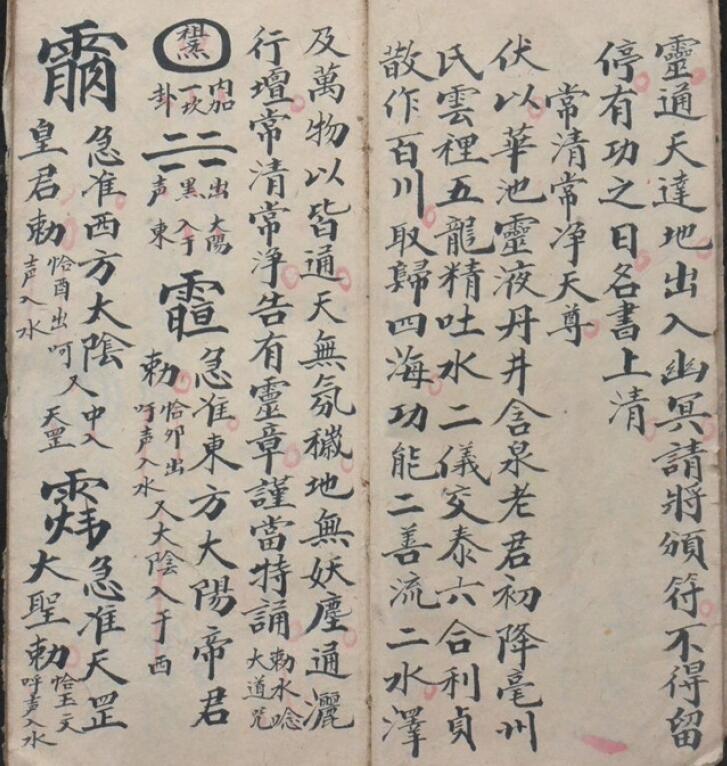 靈通天達地出入幽冥請將頒符不得留
停有功之日名書上清
常清常净天尊
伏以華池靈液丹井含泉老君初降亳州
氏雲裡五龍精吐水二儀交泰六合利貞
散作百川取歸四海功能二善流二水澤
及萬物以皆通天無氛穢地無妖塵通灑
行壇常清常淨告有靈章謹當特誦
勅水唸
大道咒
內加
一坎
卦
出太陽
黑入于
声東
急准東方大陽帝君
勅
恰卯出
呼声入水
又大陰入于西
急准西方太陰
皇君勅
恰酉出呵
声入水
又中入
天罡
急准天罡
大聖勅
恰玉文
呼声入水